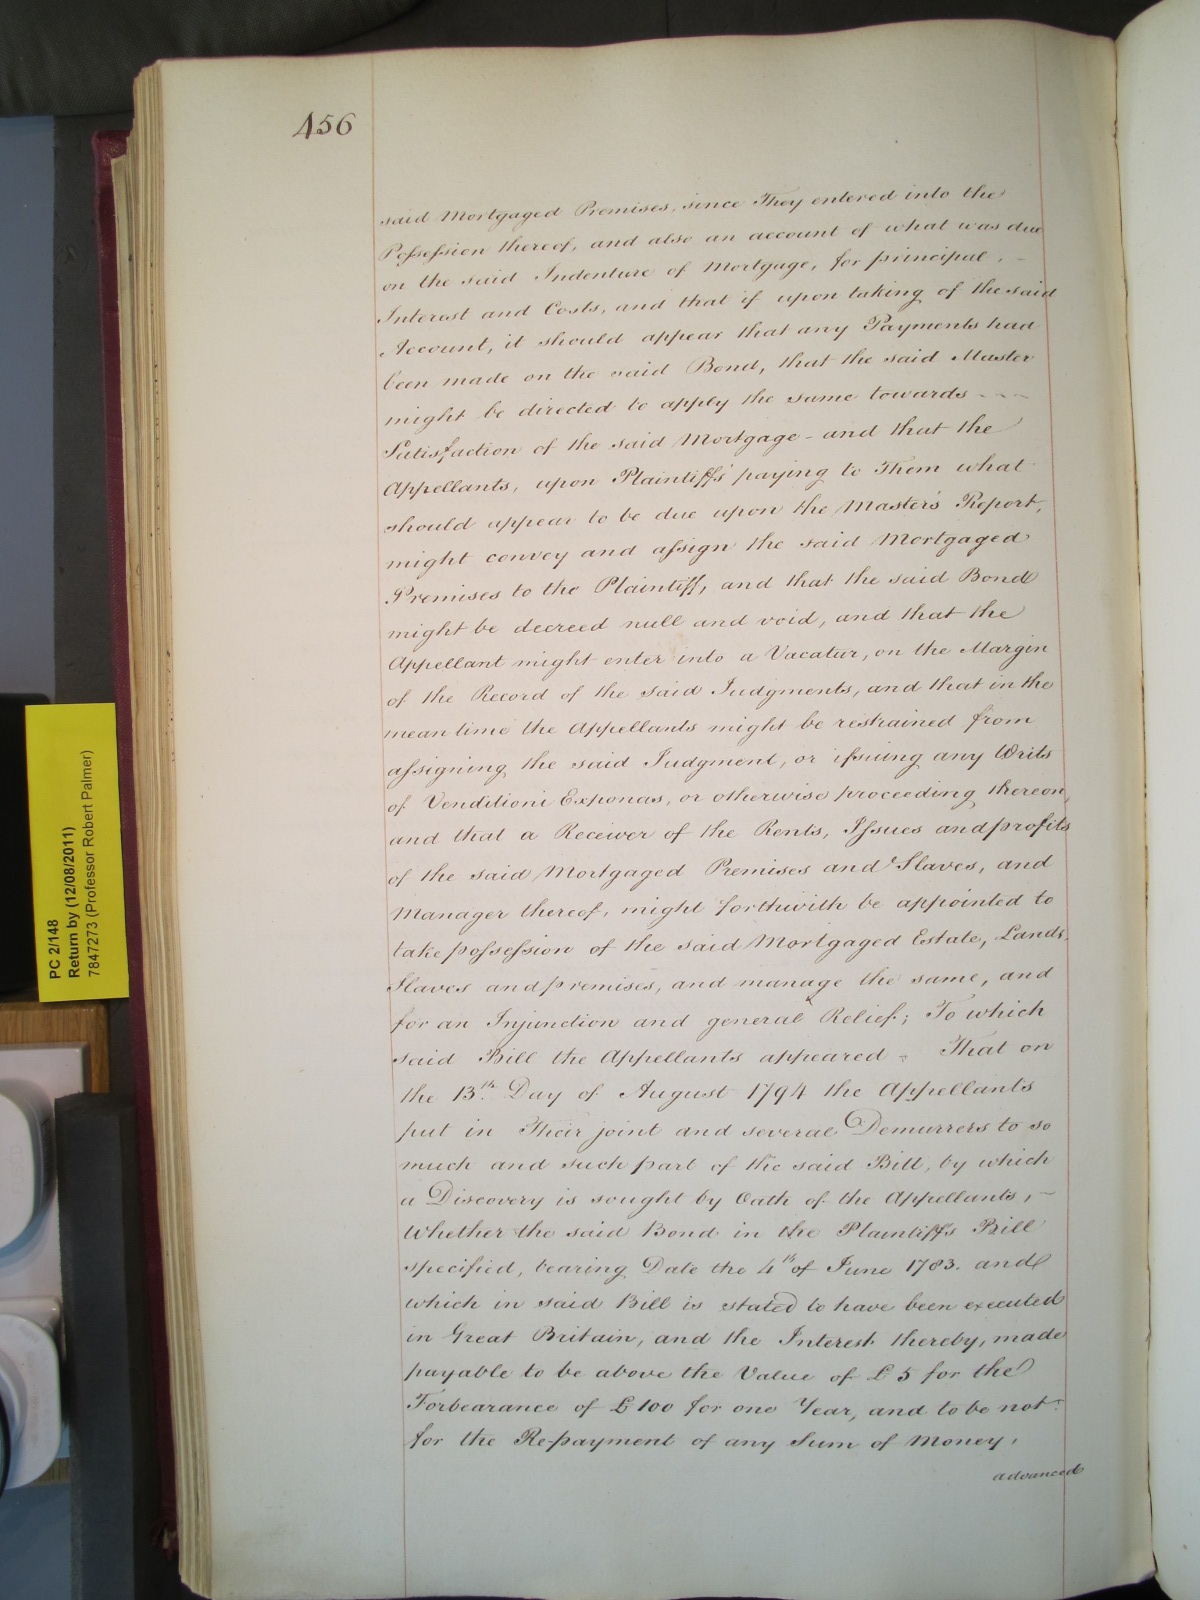 456
said Mortgaged Premises, since They entered into the
Possession thereof, and also an account of what was due
on the said Indenture of Mortgage, for principal, -
Interest and Costs, and that if upon taking of the said
Account, it should appear that any Payments had
been made on the said Bond, that the said Master
might be directed to apply the same towards - - -
Satisfaction of the said Mortgage - and that the
Appellants, upon Plaintiff's paying to Them what
should appear to be due upon the Master's Report,
might convey and assign the said Mortgaged
Premises to the Plaintiff, and that the said Bond
might be decreed null and void, and that the
Appellant might enter into a Vacatur, on the Margin
of the Record of the said Judgments, and that in the
mean time the Appellants might be restrained from
assigning the said Judgment, or issuing any Writs
of Venditioni Exponas, or otherwise proceeding thereon,
and that a Receiver of the Rents, Issues and profits
of the said Mortgaged Premises and Slaves, and
Manager thereof, might forthwith be appointed to
take possession of the said Mortgaged Estate, Lands,
Slaves and premises, and manage the same, and
for an Injunction and general Relief; To which
said Bill the Appellants appeared. That on
the 13th. Day of August 1794 the Appellants
put in Their joint and several Demurrers to so
much and such part of the said Bill, by which
a Discovery is sought by Oath of the Appellants, -
Whether the said Bond in the Plaintiff's Bill
specified, bearing Date the 4th of June 1783. and
which in said Bill is stated to have been executed
in Great Britain, and the Interest thereby, made
payable to be above the Value of £5 for the
Forbearance of £100 for one Year, and to be not
for the Re-payment of any Sum of Money,
advanced
PC 2/148
Return by (12/08/2011)
7847273 (Professor Robert Palmer)